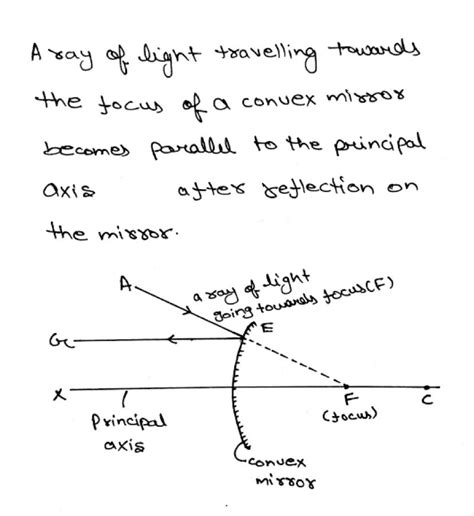 A ray of light travelling towards
the focus of a convex mirror
becomes parallel to the principal
axis after reflection on
the mirror.
A
a ray of light
going towards focus(F)
E
G
X
F
C
Principal
axis
(focus)
convex
mirror